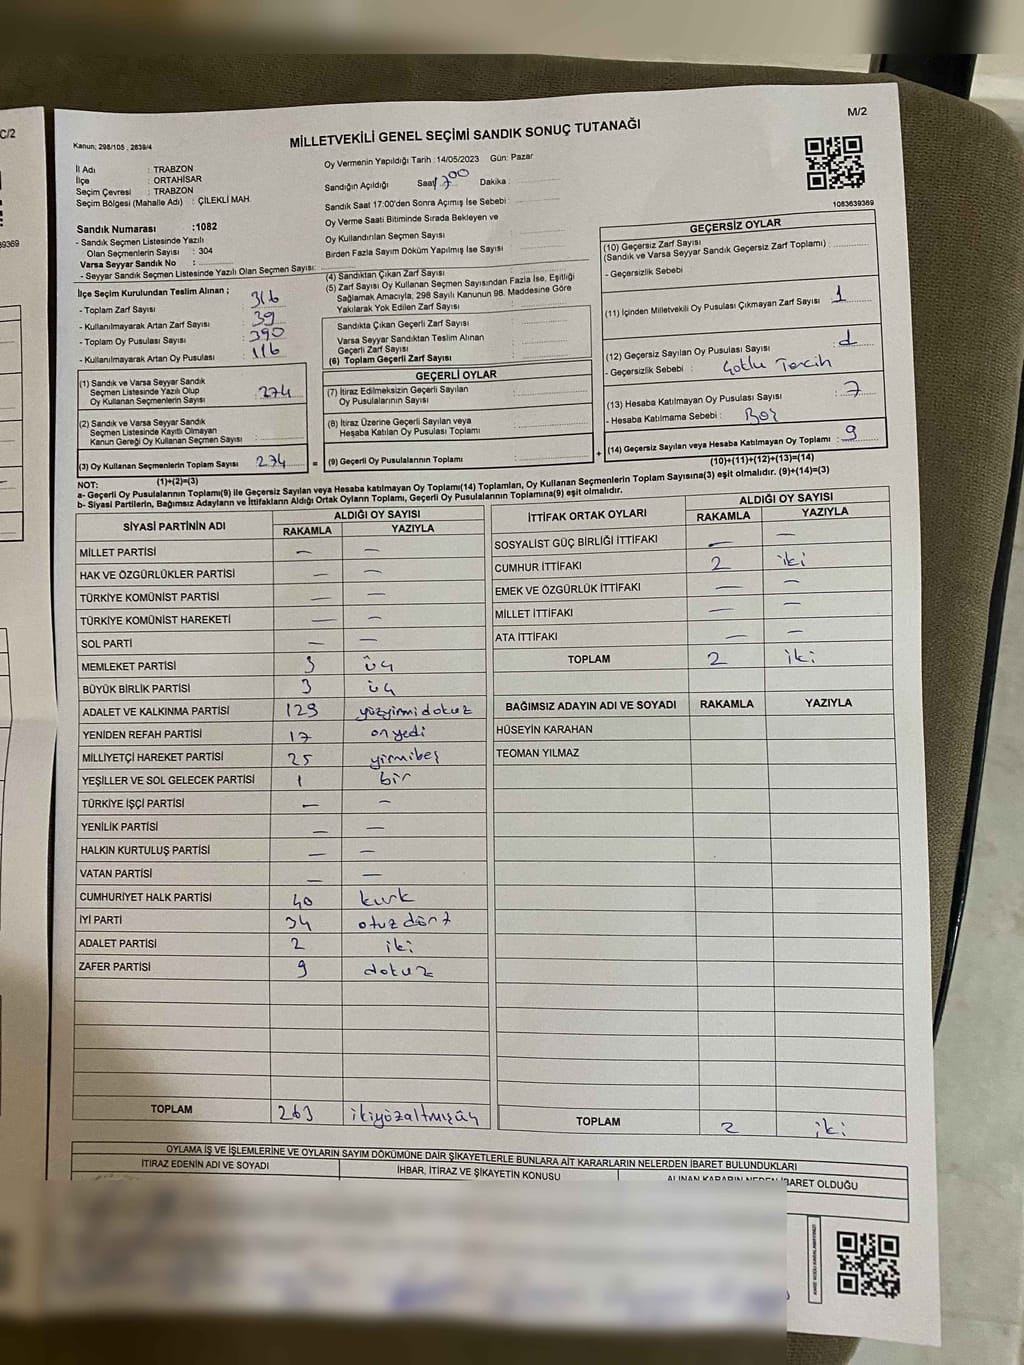 C/2
M/2
Kanun; 298/105 , 2839/4
MİLLETVEKİLİ GENEL SEÇİMİ SANDIK SONUÇ TUTANAĞI
İl Adı : TRABZON
İlçe : ORTAHİSAR
Seçim Çevresi : TRABZON
Seçim Bölgesi (Mahalle Adı) : ÇİLEKLİ MAH.
Sandık Numarası :1082
- Sandık Seçmen Listesinde Yazılı
Olan Seçmenlerin Sayısı : 304
Varsa Seyyar Sandık No :
- Seyyar Sandık Seçmen Listesinde Yazılı Olan Seçmen Sayısı:
Oy Vermenin Yapıldığı Tarih :14/05/2023 Gün: Pazar
Sandığın Açıldığı Saat 17 00 Dakika :
Sandık Saat 17:00'den Sonra Açımış İse Sebebi :
Oy Verme Saati Bitiminde Sırada Bekleyen ve
Oy Kullandırılan Seçmen Sayısı :
Birden Fazla Sayım Döküm Yapılmış İse Sayısı :
1083639369
İlçe Seçim Kurulundan Teslim Alınan ;
- Toplam Zarf Sayısı : 316
- Kullanılmayarak Artan Zarf Sayısı : 39
- Toplam Oy Pusulası Sayısı : 390
- Kullanılmayarak Artan Oy Pusulası : 116
(1) Sandık ve Varsa Seyyar Sandık
Seçmen Listesinde Yazılı Olup
Oy Kullanan Seçmenlerin Sayısı : 274
(2) Sandık ve Varsa Seyyar Sandık
Seçmen Listesinde Kayıtlı Olmayan
Kanun Gereği Oy Kullanan Seçmen Sayısı :
(3) Oy Kullanan Seçmenlerin Toplam Sayısı : 274 =
(4) Sandıktan Çıkan Zarf Sayısı :
(5) Zarf Sayısı Oy Kullanan Seçmen Sayısından Fazla İse, Eşitliği
Sağlamak Amacıyla, 298 Sayılı Kanunun 98. Maddesine Göre
Yakılarak Yok Edilen Zarf Sayısı :
Sandıkta Çıkan Geçerli Zarf Sayısı :
Varsa Seyyar Sandıktan Teslim Alınan
Geçerli Zarf Sayısı :
(6) Toplam Geçerli Zarf Sayısı :
GEÇERLİ OYLAR
(7) İtiraz Edilmeksizin Geçerli Sayılan
Oy Pusulalarının Sayısı :
(8) İtiraz Üzerine Geçerli Sayılan veya
Hesaba Katılan Oy Pusulası Toplamı :
(9) Geçerli Oy Pusulalarının Toplamı : +
GEÇERSİZ OYLAR
(10) Geçersiz Zarf Sayısı
(Sandık ve Varsa Seyyar Sandık Geçersiz Zarf Toplamı) :
- Geçersizlik Sebebi :
(11) İçinden Milletvekili Oy Pusulası Çıkmayan Zarf Sayısı : 1
(12) Geçersiz Sayılan Oy Pusulası Sayısı :
- Geçersizlik Sebebi : Çoklu Tercih
(13) Hesaba Katılmayan Oy Pusulası Sayısı : 7
- Hesaba Katılmama Sebebi : Boş
(14) Geçersiz Sayılan veya Hesaba Katılmayan Oy Toplamı : 9
(10)+(11)+(12)+(13)=(14)
NOT: (1)+(2)=(3)
a- Geçerli Oy Pusulalarının Toplamı(9) ile Geçersiz Sayılan veya Hesaba katılmayan Oy Toplamı(14) Toplamları, Oy Kullanan Seçmenlerin Toplam Sayısına(3) eşit olmalıdır. (9)+(14)=(3)
b- Siyasi Partilerin, Bağımsız Adayların ve İttifakların Aldığı Ortak Oyların Toplamı, Geçerli Oy Pusulalarının Toplamına(9) eşit olmalıdır.
SİYASİ PARTİNİN ADI ALDIĞI OY SAYISI
RAKAMLA YAZIYLA
MİLLET PARTİSİ — —
HAK VE ÖZGÜRLÜKLER PARTİSİ — —
TÜRKİYE KOMÜNİST PARTİSİ — —
TÜRKİYE KOMÜNİST HAREKETİ — —
SOL PARTİ — —
MEMLEKET PARTİSİ 3 üç
BÜYÜK BİRLİK PARTİSİ 3 üç
ADALET VE KALKINMA PARTİSİ 129 yüzyirmidokuz
YENİDEN REFAH PARTİSİ 17 onyedi
MİLLİYETÇİ HAREKET PARTİSİ 25 yirmibeş
YEŞİLLER VE SOL GELECEK PARTİSİ 1 bir
TÜRKİYE İŞÇİ PARTİSİ — —
YENİLİK PARTİSİ — —
HALKIN KURTULUŞ PARTİSİ — —
VATAN PARTİSİ — —
CUMHURİYET HALK PARTİSİ 40 kırk
İYİ PARTİ 34 otuzdört
ADALET PARTİSİ 2 iki
ZAFER PARTİSİ 9 dokuz
TOPLAM 263 ikiyüzaltmışüç
İTTİFAK ORTAK OYLARI ALDIĞI OY SAYISI
RAKAMLA YAZIYLA
SOSYALİST GÜÇ BİRLİĞİ İTTİFAKI — —
CUMHUR İTTİFAKI 2 iki
EMEK VE ÖZGÜRLÜK İTTİFAKI — —
MİLLET İTTİFAKI — —
ATA İTTİFAKI — —
TOPLAM 2 iki
BAĞIMSIZ ADAYIN ADI VE SOYADI RAKAMLA YAZIYLA
HÜSEYİN KARAHAN
TEOMAN YILMAZ
TOPLAM 2 iki
OYLAMA İŞ VE İŞLEMLERİNE VE OYLARIN SAYIM DÖKÜMÜNE DAİR ŞİKAYETLERLE BUNLARA AİT KARARLARIN NELERDEN İBARET BULUNDUKLARI
İTİRAZ EDENİN ADI VE SOYADI İHBAR, İTİRAZ VE ŞİKAYETİN KONUSU ALINAN KARARIN NEDEN İBARET OLDUĞU